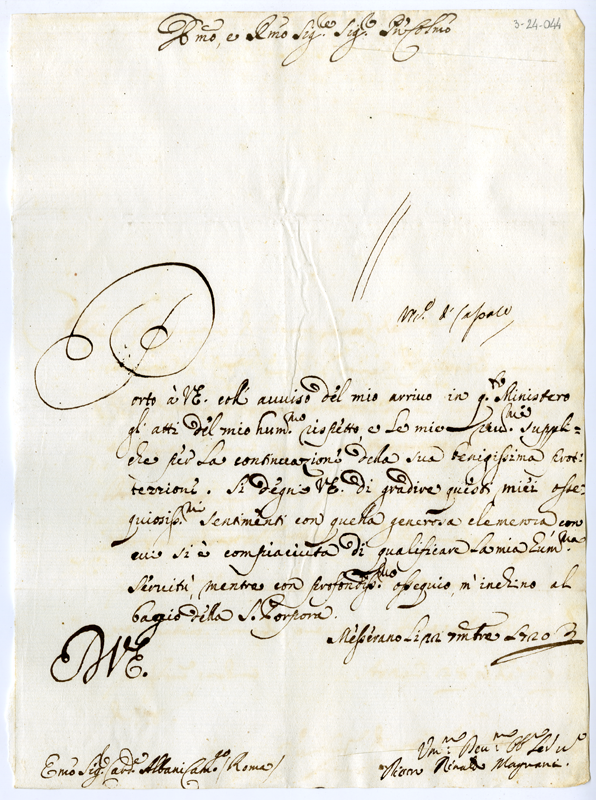 3-24-044
Em̃o, e Rm̃o Sig.re Sig.re Pñ Colm̃o
di Casale
Porto à VE. coll' avviso del mio arrivo in q.to Ministero
gl'atti del mio hum.mo rispetto e le mie Suppli=
che per la continuazione della sua benigissima Prot=
tezzione. Si degni VE. di gradire questi miei osse=
quiosiss.mi sentimenti con quella generosa clemenza con
cui si è compiaciuta di qualificare la mia hum.ma
servitù, mentre con profondiss.mo ossequio, m'inchino al
baggio della S. Porpora.
Messerano li 22 7mbre 1720
DVE.
Em̃o Sig.r Card.le Albani Cam.go / Roma /
Um.mo Dev.mo Obb.mo Ser.re
Rinaldo Magnani.